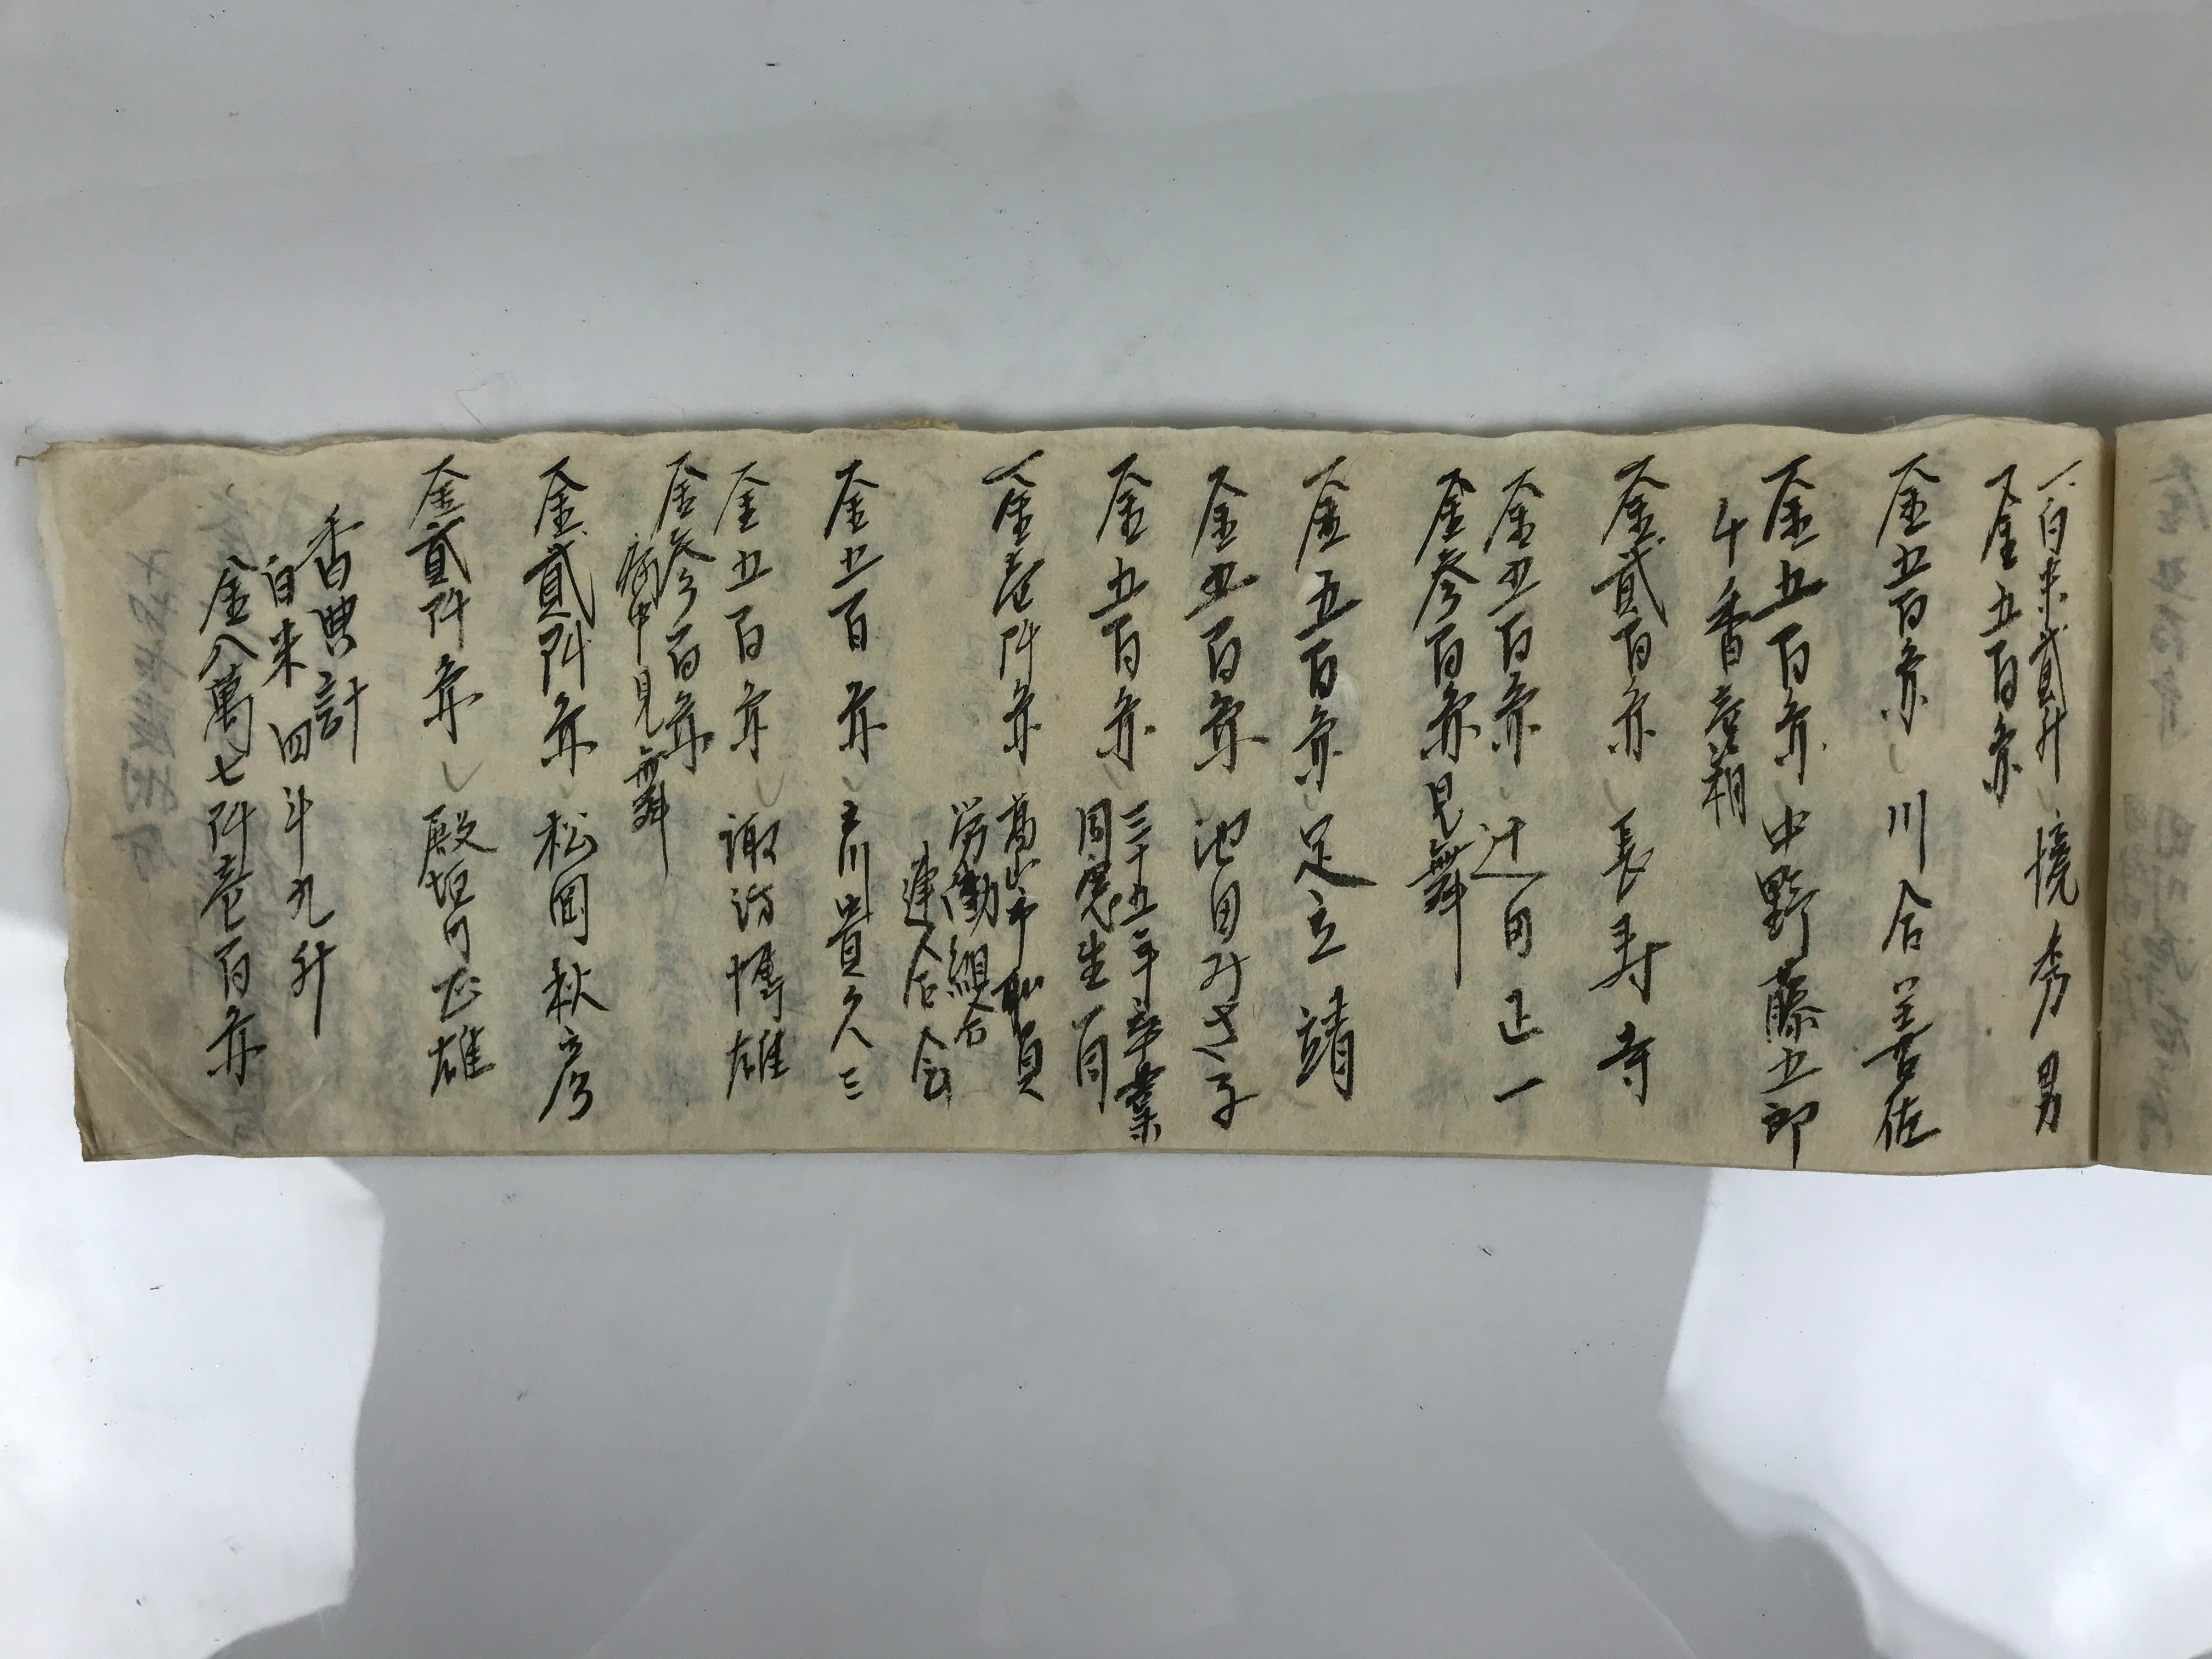 一白米貳升 境秀男
一金五百円
一金五百円 川合善佐
一金五百円 中野藤五郎
千香壱箱
一金貳百円 長寿寺
一金五百円 辻田正一
一金参百円 見舞
一金五百円 足立靖
一金五百円 池田みさ子
一金五百円 三十五年卒業
同窓生一同
一金壱阡円 高山市職員
労働組合
連合会
一金五百円 玉川貴久三
一金五百円 諏訪博雄
一金参百円
病中見舞
一金貳阡円 松岡秋彦
一金貳阡円 殿垣内正雄
香典計
白米四斗九升
金八萬七阡壱百円